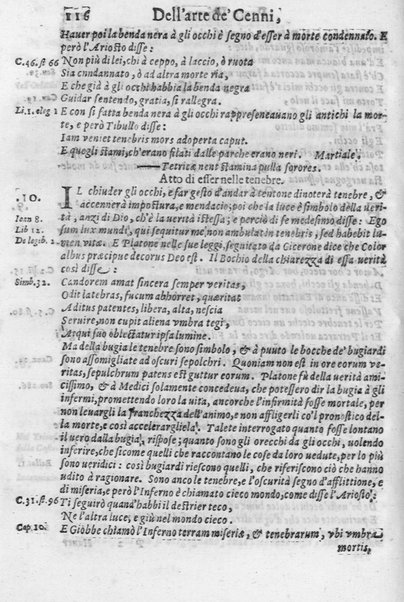 116 Dell'arte de' Cenni,
Hauer poi la benda nera à gli occhi è segno d'esser à morte condennato. E
però l'Ariosto disse:
C. 46. st 66 Non più di lei, chi à ceppo, ò laccio, ò ruota
Sia condannato, ò ad altra morte ria,
E che già à gli occhi habbia la benda negra
Guidar sentendo, gratia, si rallegra.
Li. 1. eleg 1 E con sì fatta benda nera à gli occhi rappresentauano gli antichi la mor
te, e però Tibullo disse:
Iam veniet tenebris mors adoperta caput.
E quegli stami, ch'erano filati dalle parche erano neri. Martiale.
Tetricæ nent stamina pulla sorores.
Atto di esser nelle tenebre.
10. IL chiuder gli occhi, e far gesto d'andar à tentone dinoterà tenebre, &
accennerà impostura, e mendacio, poi che la luce è simbolo della ve-
Ioan 8. rità, anzi di Dio, ch'è la uerità istessa; e perciò di se medesimo disse: Ego
Lib 12. sum lux mundi, qui sequitur me non ambulat in tenebris, sed habebit lu-
De legib. 2. men vitæ. E Platone nelle sue leggi, seguitato da Cicerone dice che Color
albus præcipue decorus Deo est. Il Bochio della chiarezza di essa uerità
così disse:
Simb. 32. Candorem amat sincera semper veritas,
Odit latebras, fucum abhorret, quæritat
Aditus patentes, libera, alta, nescia
Seruire, non cupit aliena vmbra tegi,
Atqui suo oblectatur ipsa lumine.
Ma della bugia le tenebre sono simbolo, & à puüto le bocche de' bugiardi
sono assomigliate ad oscuri sepolchri. Quoniam non est in ore eorum ve-
ritas, sepulchrum patens est guttur eorum. Platone fù della verità ami-
cissimo, & à Medici solamente concedeua, che potessero dir la bugia à gli
infermi, promettendo loro la vita, ancorche l'infirmità fosse mortale, per
non leuargli la franchezza dell'animo, e non affliggerli co'l pronostico del-
la morte, e così accelerargliela. Talete interrogato quanto fosse lontano
il uero dalla bugia, rispose; quanto sono gli orecchi da gli occhi, uolendo
inferire, che sicome quelli che raccontano le cose da loro uedute, per lo più
sono ueridici: così bugiardi riescono quelli, che riferiscono ciò che hanno
udito à ragionare. Sono anco le tenebre, e l'oscurità segno d'afflittione, e
di miseria, e però l'Inferno è chiamato cieco mondo, come disse l'Ariosto:
C. 31. st. 96 Ti seguirò quand'habbi il destrier teco,
Ne l'altra luce, e giù nel mondo cieco.
Cap. 10. E Giobbe chiamò l'Inferno terram miseriæ, & tenebrarum, vbi vmbra
mortis,